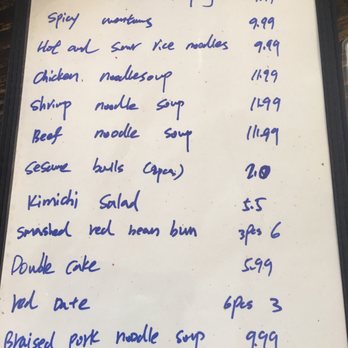 Spicy wontons 9.99
Hot and sour rice noodles 9.99
Chicken noodlesoup 11.99
Shrimp noodle soup 11.99
Beef noodle soup 11.99
Sesame balls 2.0
Kimichi Salad 5.5
Smashed red bean bun 3pcs 6
Double Cake 5.99
red Date 6pcs 3
Braised pork noodle soup 9.99